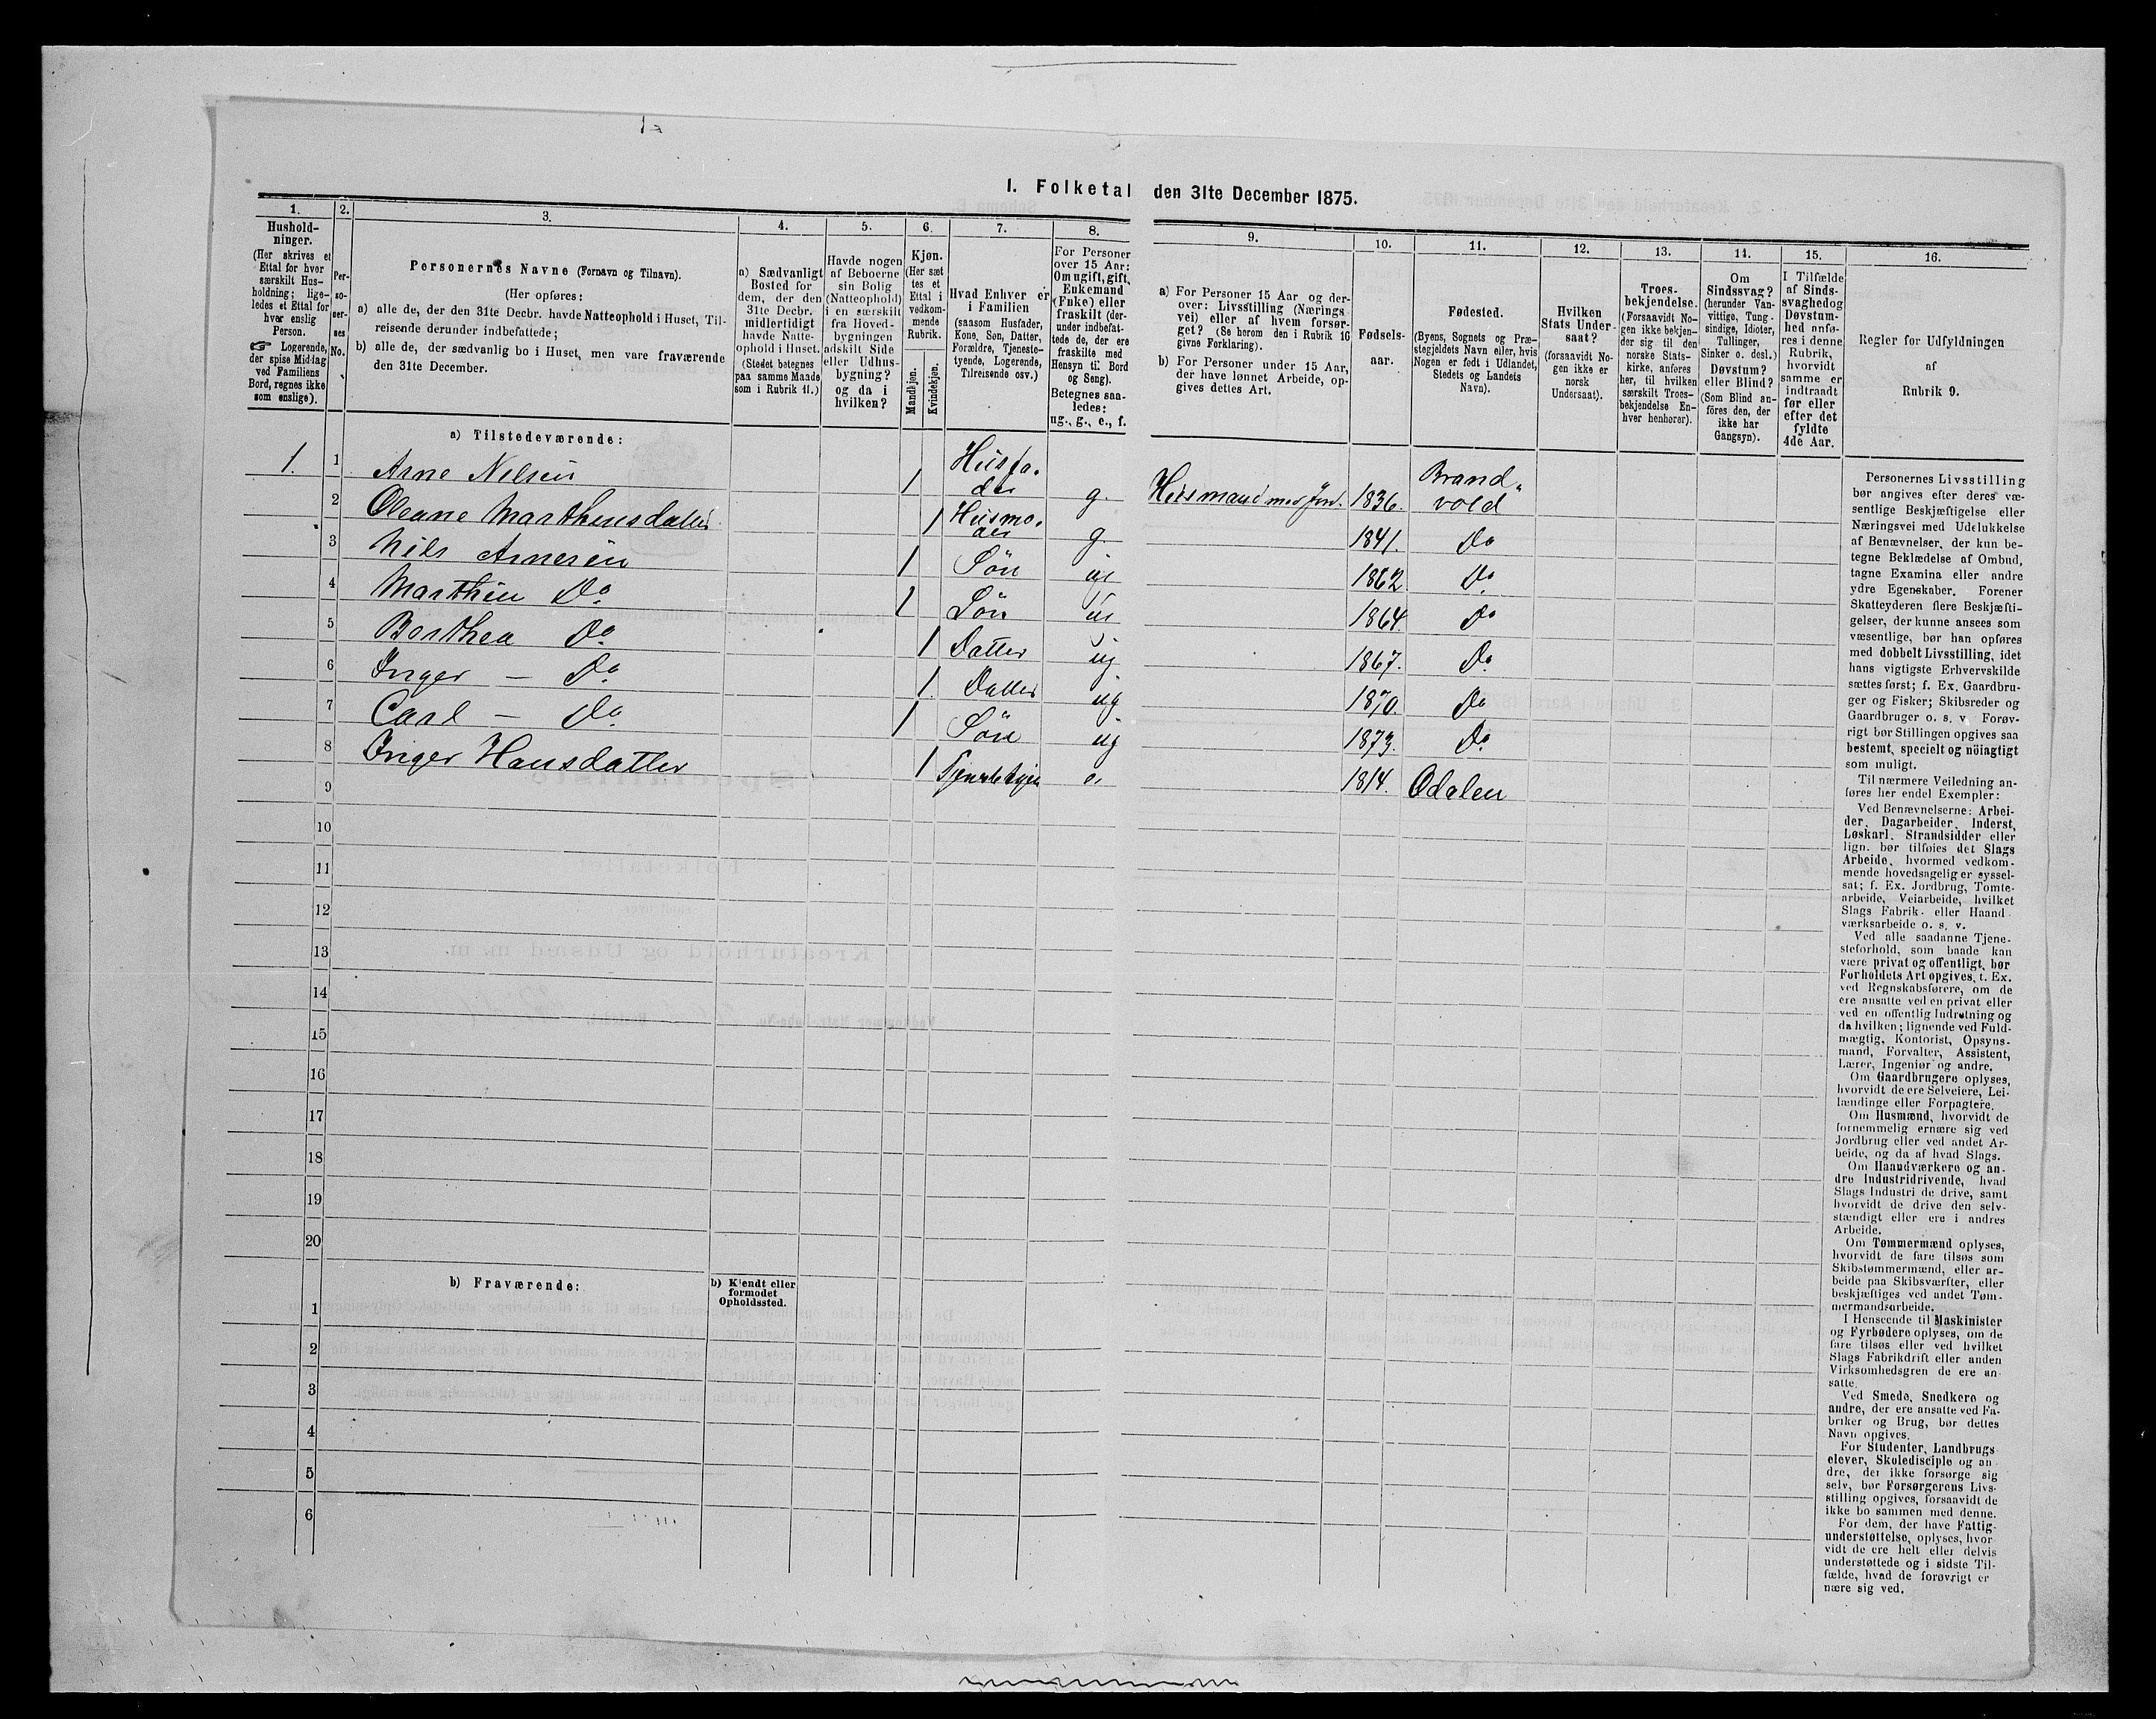 I. Folketal den 31te December 1875.
1.
Hushold-
ninger.
(Her skrives et
Ettal for hver
særskilt Hus-
holdning; lige-
ledes et Ettal for
hver enslig
Person.
Logerende,
der spise Middag
ved Familiens
Bord, regnes ikke
som enslige).
2.
Per-
so-
ner-
nes
No.
3.
Personernes Navne (Fornavn og Tilnavn).
(Her opføres:
a) alle de, der den 31te Decbr. havde Natteophold i Huset, Til-
reisende derunder indbefattede;
b) alle de, der sædvanlig bo i Huset, men vare fraværende
den 31te December.
4.
a) Sædvanligt
Bosted for
dem, der den
31te Decbr.
midlertidigt
havde Natte-
ophold i Huset.
(Stedet betegnes
paa samme Maade
som i Rubrik 11.)
5.
Havde nogen
af Beboerne
sin Bolig
(Natteophold)
i en særskilt
fra Hoved-
bygningen
adskilt Side
eller Udhus-
bygning?
og da i
hvilken?
6.
Kjøn.
(Her sæt
tes et
Ettal i
vedkom-
mende
Rubrik.
Mandkjøn.
Kvindekjøn.
7.
Hvad Enhver er
i Familien
(saasom Husfader,
Kone, Søn, Datter,
Forældre, Tjeneste-
tyende, Logerende,
Tilreisende osv.)
8.
For Personer
over 15 Aar:
Om ugift, gift,
Enkemand
(Enke) eller
fraskilt (der-
under indbefat-
tede de, der ere
fraskilte med
Hensyn til Bord
og Seng).
Betegnes saa-
ledes:
ug., g., e., f.
9.
a) For Personer 15 Aar og der-
over: Livsstilling (Nærings
vei) eller af hvem forsør-
get? (Se herom den i Rubrik 16
givne Forklaring).
b) For Personer under 15 Aar,
der have lønnet Arbeide, op-
gives dettes Art.
10.
Fødsels-
aar.
11.
Fødested.
(Byens, Sognets og Præ-
stegjeldets Navn eller, hvis
Nogen er født i Udlandet,
Stedets og Landets
Navn).
12.
Hvilken
Stats Under-
saat?
(forsaavidt No-
gen ikke er
norsk
Undersaat).
13.
Troes-
bekjendelse.
(Forsaavidt No-
gen ikke bekjen-
der sig til den
norske Stats-
kirke, anføres
her, til hvilken
særskilt Troes-
bekjendelse En-
hver henhører).
14.
Om
Sindssvag?
(herunder Van-
vittige, Tung-
sindige, Idioter,
Tullinger,
Sinker o. desl.)
Døvstum?
eller Blind?
(Som Blind an-
føres den, der
ikke har
Gangsyn).
15.
I Tilfælde
af Sinds-
svaghed og
Døvstum-
hed anfø-
res i denne
Rubrik,
hvorvidt
samme er
indtraadt
før eller
efter det
fyldte
4de Aar.
16.
Regler for Udfyldningen
af
Rubrik 9.
a) Tilstedeværende:
1. 1 Arne Nilsen 1 Husfa- der g. Husmand med Jord. 1836. Brand- vold
2 Oleane Marthinsdatter 1 Husmo- der g. 1841. Do
3 Nils Arnesen 1 Sön ug 1862 Do
4 Marthin Do 1 Sön ug 1864. Do
5 Berthea Do 1 Datter ug 1867. Do
6 Inger – Do 1 Datter ug 1870. Do
7 Carl – Do 1 Sön ug 1873. Do
8 Inger Hansdatter 1 e. 1814. Odalen
9
10
11
12
13
14
15
16
17
18
19
20
b) Fraværende:
b) Kjendt eller
formodet
Opholdssted.
1
2
3
4
5
6
Personernes Livsstilling
bør angives efter deres væ-
sentlige Beskjæftigelse eller
Næringsvei med Udelukkelse
af Benævnelser, der kun be-
tegne Beklædelse af Ombud,
tagne Examina eller andre
ydre Egenskaber. Forener
Skatteyderen flere Beskjæfti-
gelser, der kunne ansees som
væsentlige, bør han opføres
med dobbelt Livsstilling, idet
hans vigtigste Erhvervskilde
sættes først; f. Ex. Gaardbru-
ger og Fisker; Skibsreder og
Gaardbruger o. s. v. Forøv-
rigt bør Stillingen opgives saa
bestemt, specielt og nöiagtigt
som muligt.
Til nærmere Veiledning an-
føres her endel Exempler:
Ved Benævnelserne: Arbei-
der, Dagarbeider, Inderst,
Løskarl, Strandsidder eller
lign. bør tilføies det Slags
Arbeide, hvormed vedkom-
mende hovedsagelig er syssel-
sat; f. Ex. Jordbrug, Tomte-
arbeide, Veiarbeide, hvilket
Slags Fabrik- eller Haand-
værksarbeide o. s. v.
Ved alle saadanne Tjene-
steforhold, som baade kan
være privat og offentligt, bør
Forholdets Art opgives, f. Ex.
ved Regnskabsførere, om de
ere ansatte ved en privat eller
ved en offentlig Indretning og
da hvilken; lignende ved Fuld-
mægtig, Kontorist, Opsyns-
mand, Forvalter, Assistent,
Lærer, Ingeniør og andre.
Om Gaardbrugere oplyses,
hvorvidt de ere Selveiere, Lei-
lændinge eller Forpagtere.
Om Husmænd, hvorvidt de
fornemmelig ernære sig ved
Jordbrug eller ved andet Ar-
beide, og da af hvad Slags.
Om Haandværkere og an-
dre Industridrivende, hvad
Slags Industri de drive, samt
hvorvidt de drive den selv-
stændigt eller ere i andres
Arbeide.
Om Tømmermænd oplyses,
hvorvidt de fare tilsøs som
Skibstømmermænd, eller ar-
beide paa Skibsværfter, eller
beskjæftiges ved andet Tøm-
mermandsarbeide.
I Henseende til Maskinister
og Fyrbødere oplyses, om de
fare tilsøs eller ved hvilket
Slags Fabrikdrift eller anden
Virksomhedsgren de ere an-
satte.
Ved Smede, Snedkere og
andre, der ere ansatte ved Fa-
briker og Brug, bør dettes
Navn opgives.
For Studenter, Landbrugs-
elever, Skoledisciple og an
dre, der ikke forsørge sig
selv, bør Forsørgerens Livs-
stilling opgives, forsaavidt de
ikke bo sammen med denne.
For dem, der have Fattig-
understøttelse, oplyses, hvor-
vidt de ere helt eller delvis
understøttede og i sidste Til-
fælde, hvad de forøvrigt er
nære sig ved.